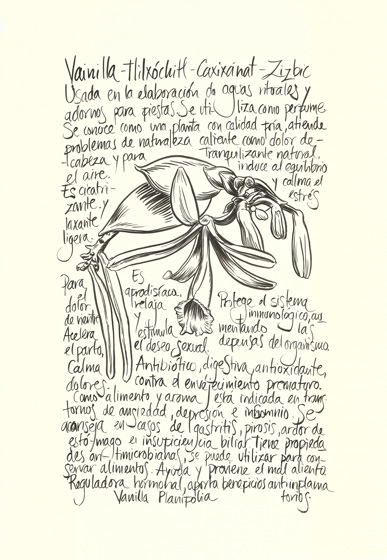 Vainilla-Tlilxóchitl-Caxixánat-Zizbic
Usada en la elaboración de aguas rituales y
adornos para fiestas. Se utiliza como perfume.
Se conoce como una planta con calidad fría, atiende
problemas de naturaleza caliente como dolor de-
cabeza y para
el aire.
Es cicatri-
zante y
laxante
ligera.
Tranquilizante natural,
induce al equilibrio
y calma el
estrés
Para
el
dolor
de vientre
Acelera
el parto,
Calma
dolores.
Es
afrodisíaca,
relaja
y
estimula
el deseo sexual.
Protege el sistema
inmonológico, au
mentando las
defensas del organismo.
Antibiótico, digestiva, antioxidante,
contra el envejecimiento prematuro.
Como alimento y aroma está indicada en tras-
tornos de ansiedad, depresión e insomnio. Se
aconseja en casos de gastritis, pirosis, ardor de
estómago e insuficiencia biliar. Tiene propieda
des antimicrobianas, se puede utilizar para con-
servar alimentos. Ayuda y previene el mal aliento.
Reguladora hormonal, aporta beneficios antiinflama
torios.
Vanilla Planifolia